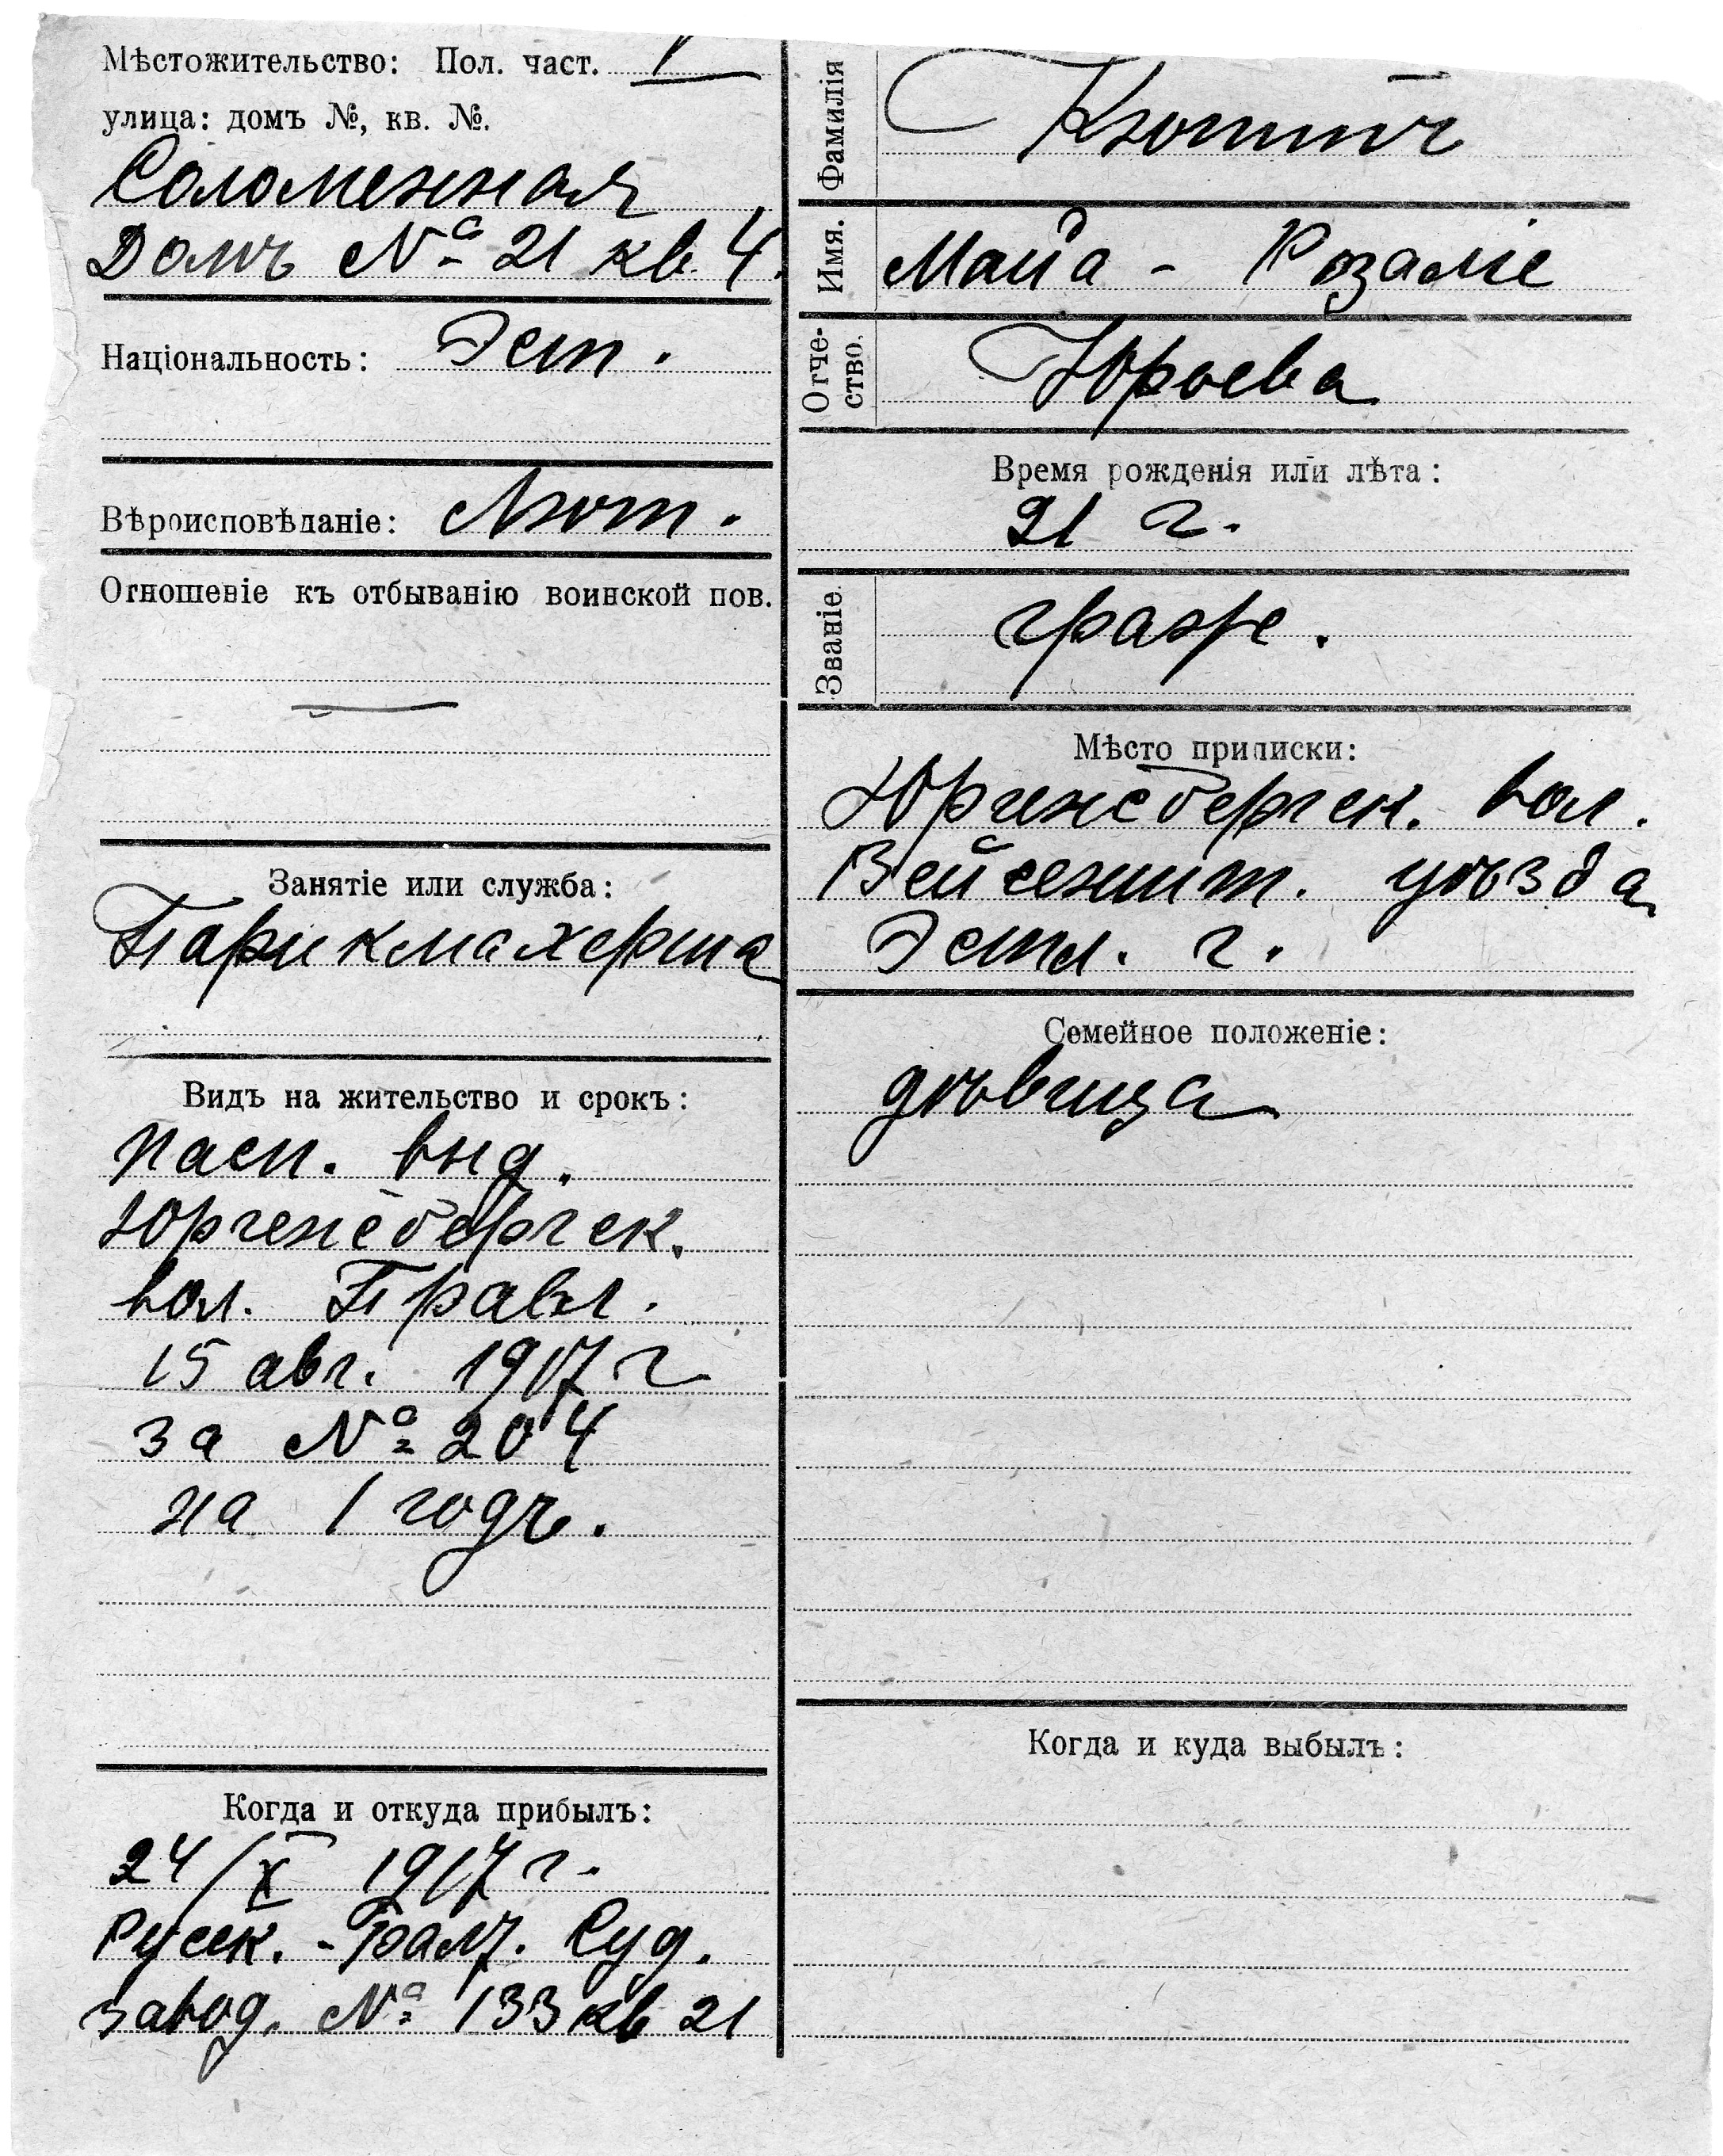 Мѣстожительство: Пол. част. I
улица: домъ №, кв. №.
Соломенная
Домъ № 21 кв. 4.
Національность: Эст.
Вѣроисповѣданіе: Лют.
Отношеніе къ отбыванію воинской пов.
—
Занятіе или служба:
Парикмахерша
Видъ на жительство и срокъ:
пасп. выд.
Юргенсбергск.
вол. Правл.
15 авг. 1917 г
за № 204
на 1 годъ.
Когда и откуда прибылъ:
24/X 1917 г.
Русск.-Балт. Суд.
завод. № 133 кв 21
Фамилія
Имя. Майа - Розаліе
Отчество. Юрьева
Время рожденія или лѣта:
21 г.
Званіе. граж.
Мѣсто приписки:
Юргенсбергск. вол.
Вейсеншт. уѣзда
Эстл. г.
Семейное положеніе:
дѣвица
Когда и куда выбылъ: